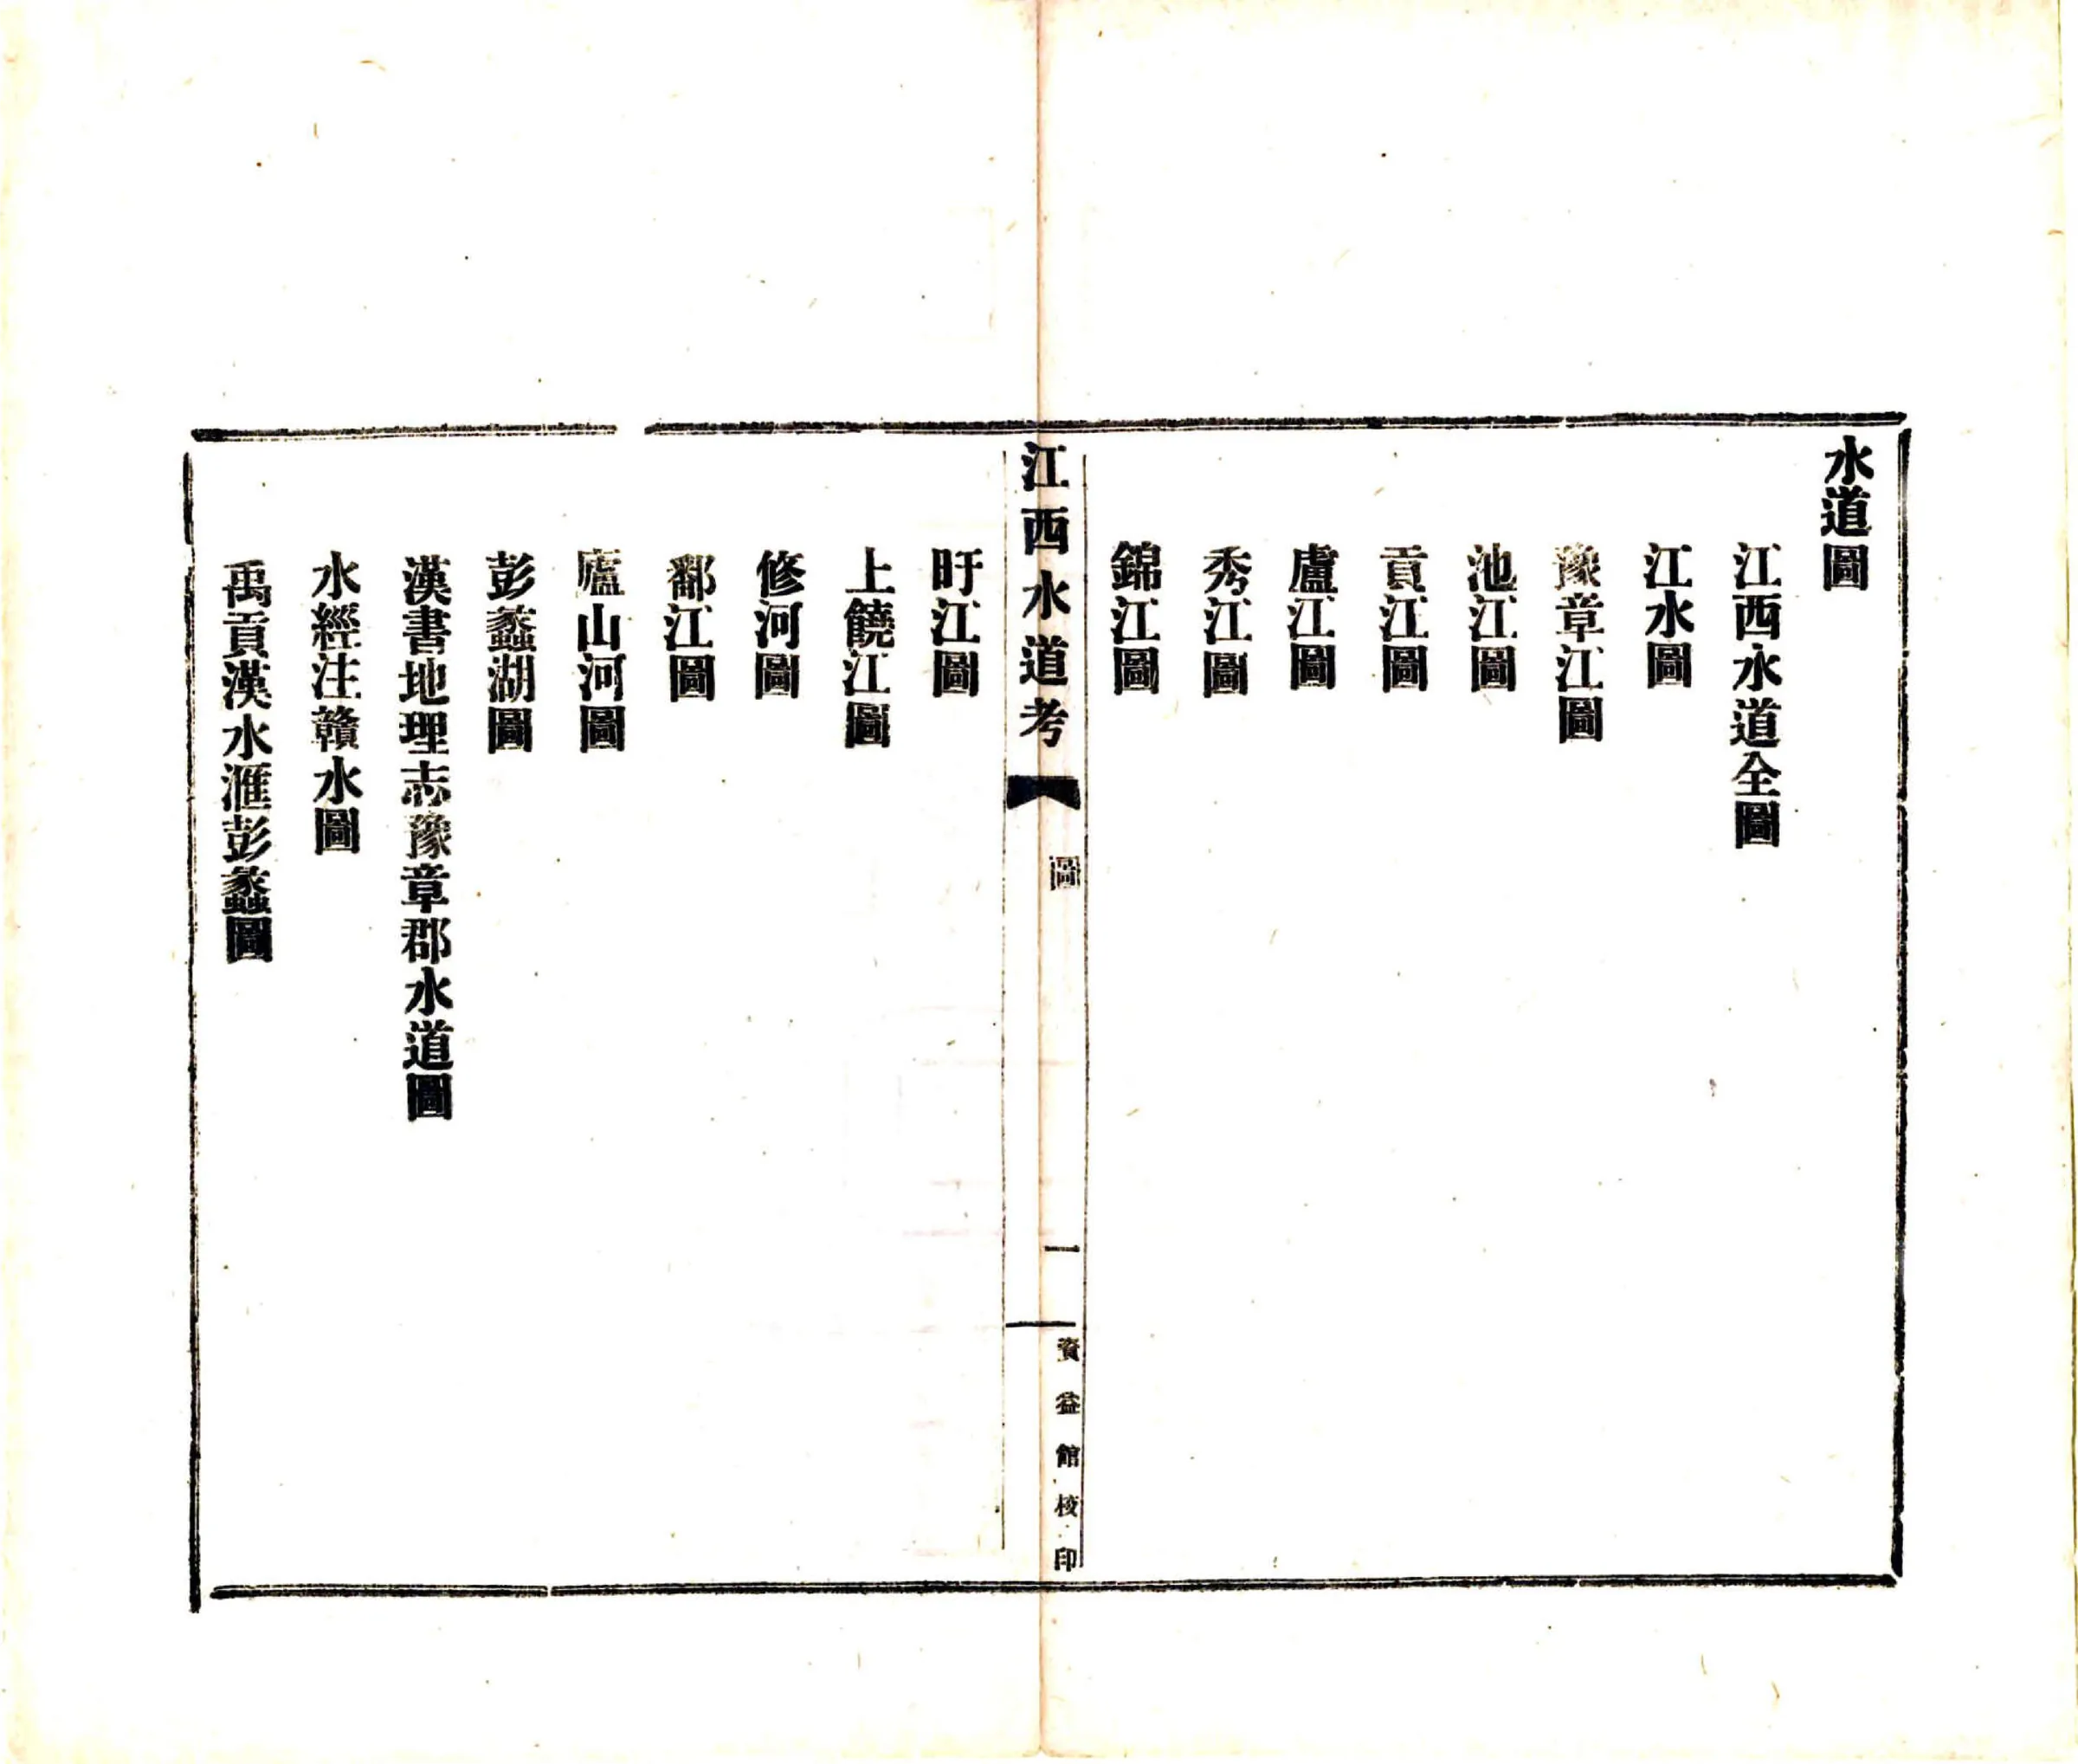 水道圖
江西水道全圖
江水圖
豫章江圖
池江圖
貢江圖
盧江圖
秀江圖
錦江圖
江西水道考
圖
一
資益館校印
旴江圖
上饒江圖
修河圖
鄱江圖
廬山河圖
彭蠡湖圖
漢書地理志豫章郡水道圖
水經注贛水圖
禹貢漢水滙彭蠡圖